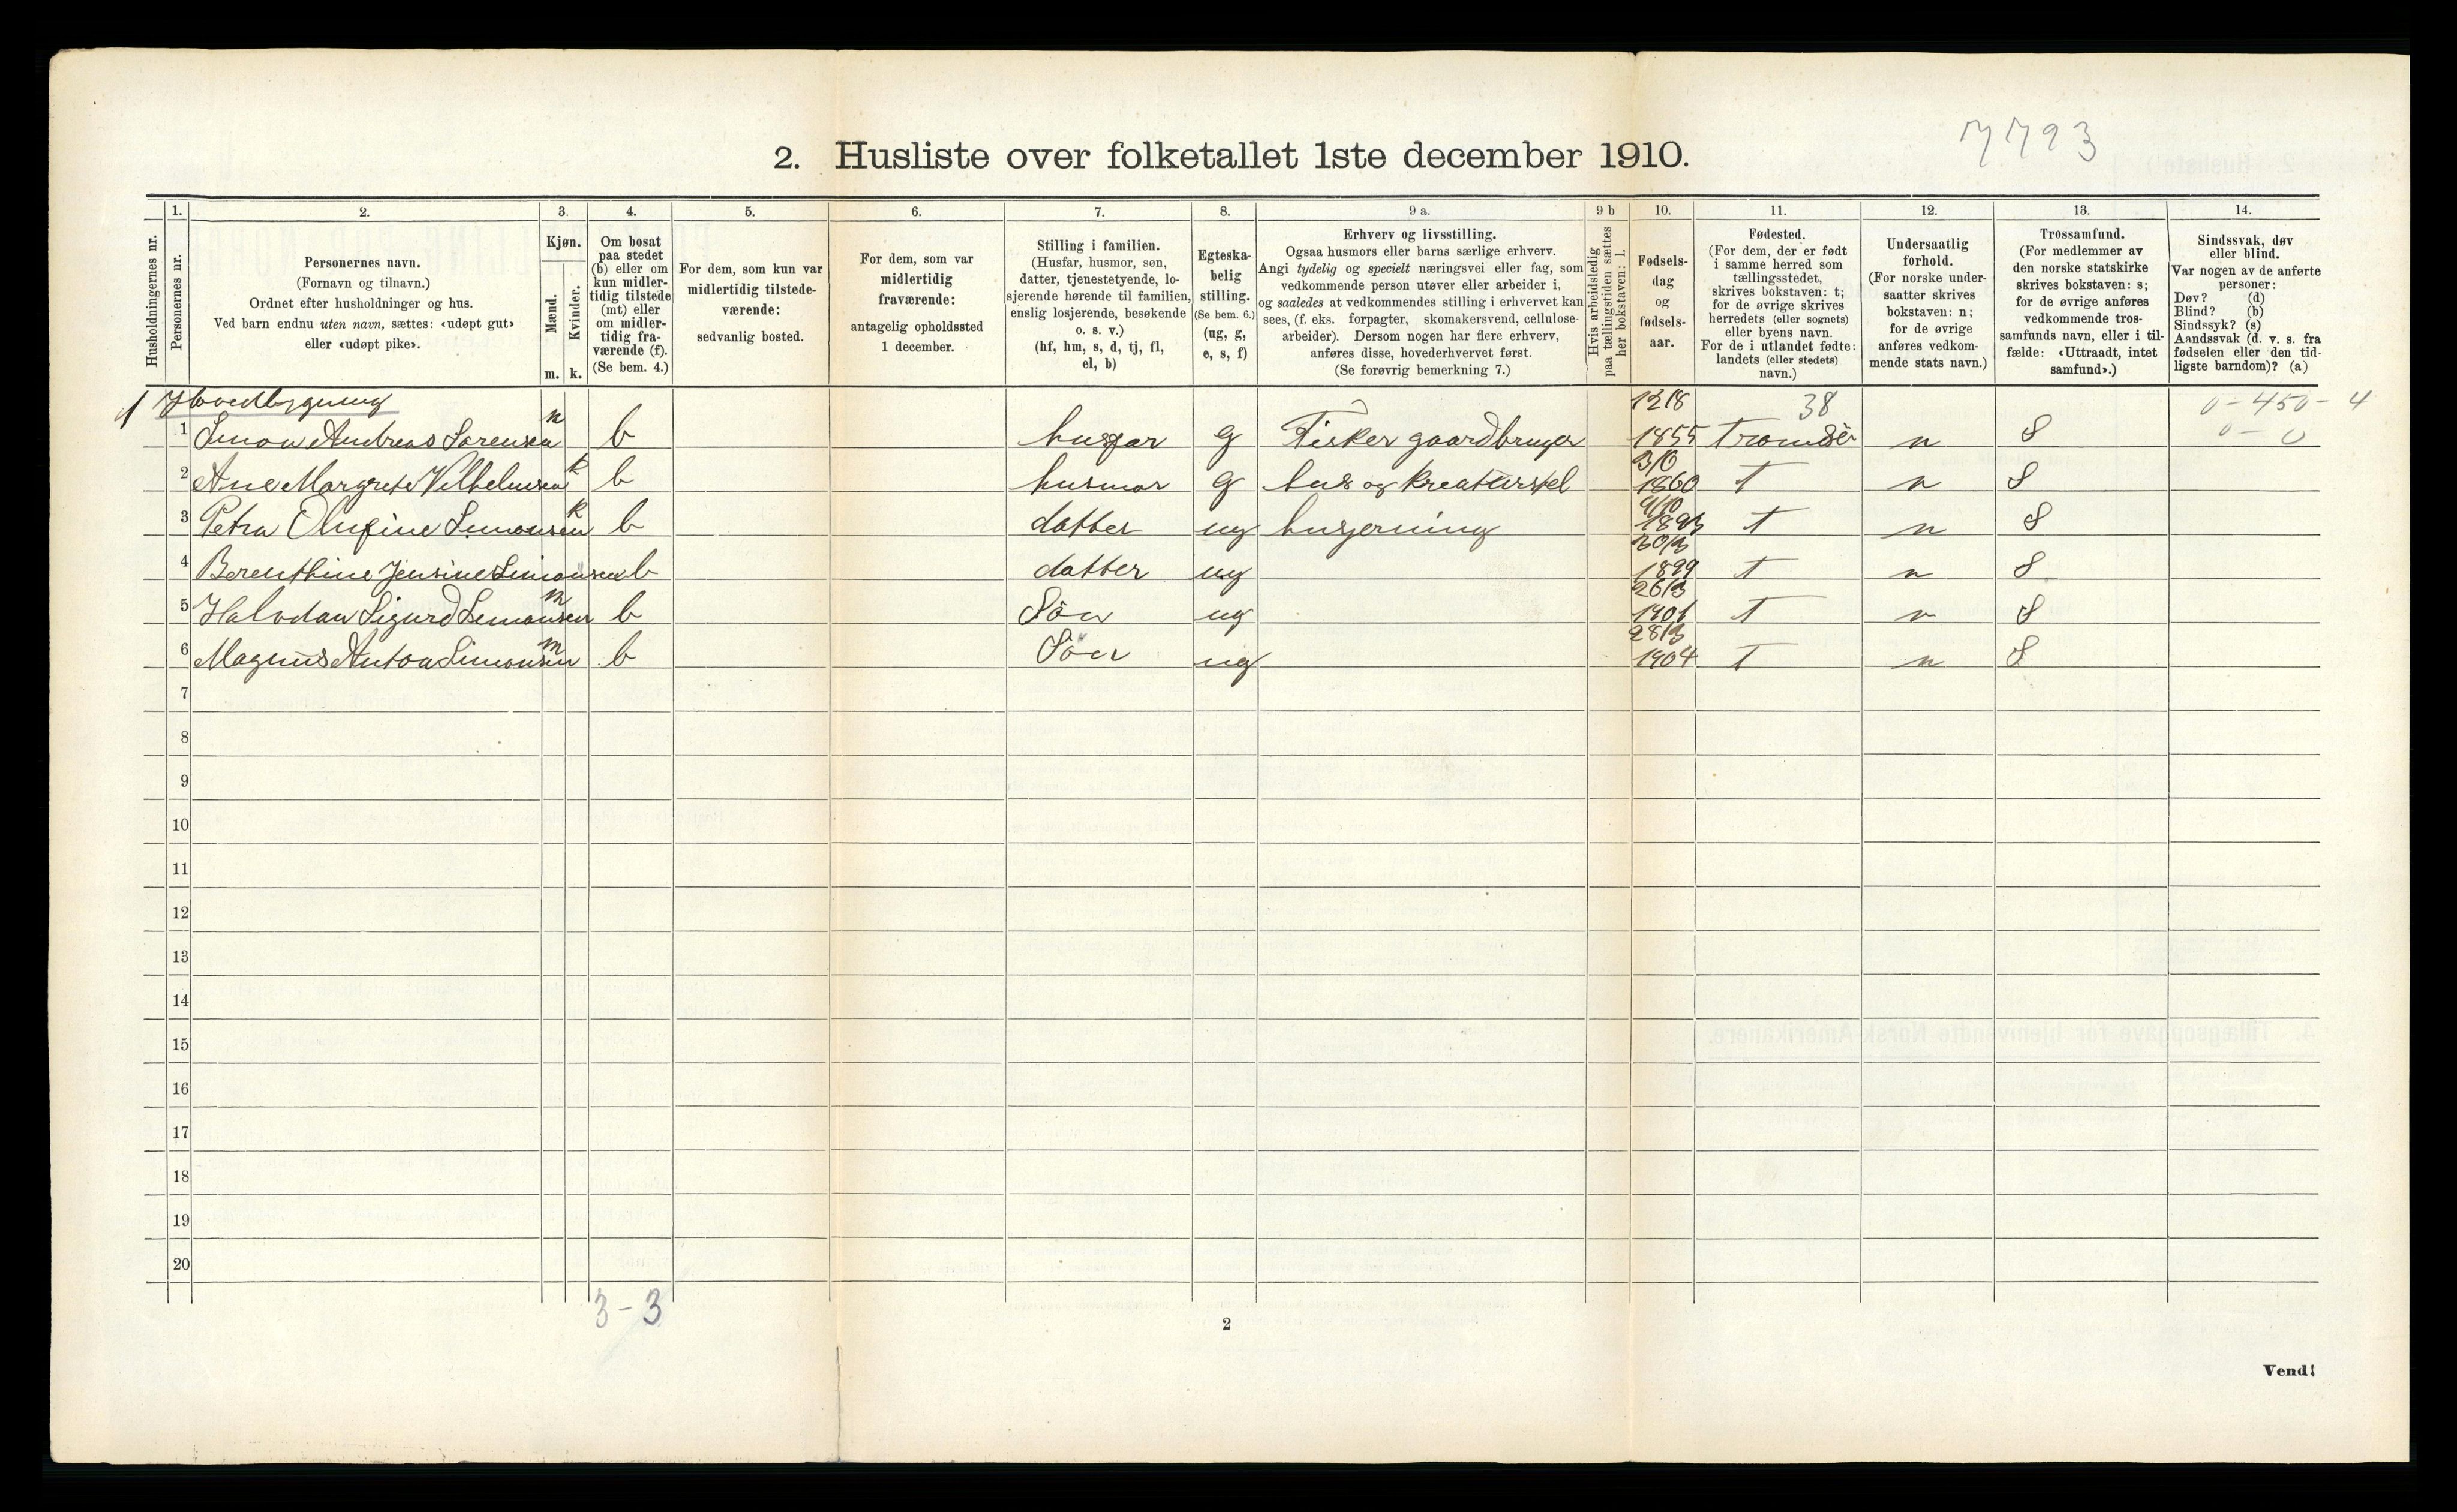 7793
2. Husliste over folketallet 1ste december 1910.
1. 2. 3. 4. 5. 6. 7. 8. 9 a. 9 b 10. 11. 12. 13. 14.
Husholdningernes nr.
Personernes nr.
Personernes navn.
(Fornavn og tilnavn.)
Ordnet efter husholdninger og hus.
Ved barn endnu uten navn, sættes: «udøpt gut»
eller «udøpt pike».
Kjøn.
Mænd.
Kvinder.
m. k.
Om bosat
paa stedet
(b) eller om
kun midler-
tidig tilstede
(mt) eller
om midler-
tidig fra-
værende (f).
(Se bem. 4.)
For dem, som kun var
midlertidig tilstede-
værende:
sedvanlig bosted.
For dem, som var
midlertidig
fraværende:
antagelig opholdssted
1 december.
Stilling i familien.
(Husfar, husmor, søn,
datter, tjenestetyende, lo-
sjerende hørende til familien,
enslig losjerende, besøkende
o. s. v.)
(hf, hm, s, d, tj, fl,
el, b)
Egteska-
belig
stilling.
(Se bem. 6.)
(ug, g,
e, s, f)
Erhverv og livsstilling.
Ogsaa husmors eller barns særlige erhverv.
Angi tydelig og specielt næringsvei eller fag, som
vedkommende person utøver eller arbeider i,
og saaledes at vedkommendes stilling i erhvervet kan
sees, (f. eks. forpagter, skomakersvend, cellulose-
arbeider). Dersom nogen har flere erhverv,
anføres disse, hovederhvervet først.
(Se forøvrig bemerkning 7.)
Hvis arbeidsledig
paa tællingstiden sættes
her bokstaven: l.
Fødsels-
dag
og
fødsels-
aar.
Fødested.
(For dem, der er født
i samme herred som
tællingsstedet,
skrives bokstaven: t;
for de øvrige skrives
herredets (eller sognets)
eller byens navn.
For de i utlandet fødte:
landets (eller stedets)
navn.)
Undersaatlig
forhold.
(For norske under-
saatter skrives
bokstaven: n;
for de øvrige
anføres vedkom-
mende stats navn.)
Trossamfund.
(For medlemmer av
den norske statskirke
skrives bokstaven: s;
for de øvrige anføres
vedkommende tros-
samfunds navn, eller i til-
fælde: «Uttraadt, intet
samfund».)
Sindssvak, døv
eller blind.
Var nogen av de anførte
personer:
Døv? (d)
Blind? (b)
Sindssyk? (s)
Aandssvak (d. v. s. fra
fødselen eller den tid-
ligste barndom)? (a)
1 Hovedbygning 12/8 38 0-450-4
1 Simon Andreas Sørensen m b husfar g Fisker gaardbruger 1855 Tromsö n S 0-0
2 Ane Margrete Vilhelmsen k b husmor g hus og kreaturstel 1860 t n S
3 Petra Olufine Simonsen k b datter ug husgerning 9/10 1893 t n S
4 Berenthine Jensine Simonsen b datter ug 30/3 1899 t n S
5 Halvdan Sigurd Simonsen m b Sön ug 26/3 1901 t n S
6 Magnus Anton Simonsen m b Sön ug 28/3 1904 t n S
7
8
9
10
11
12
13
14
15
16
17
18
19
20
3-3
2
Vend!